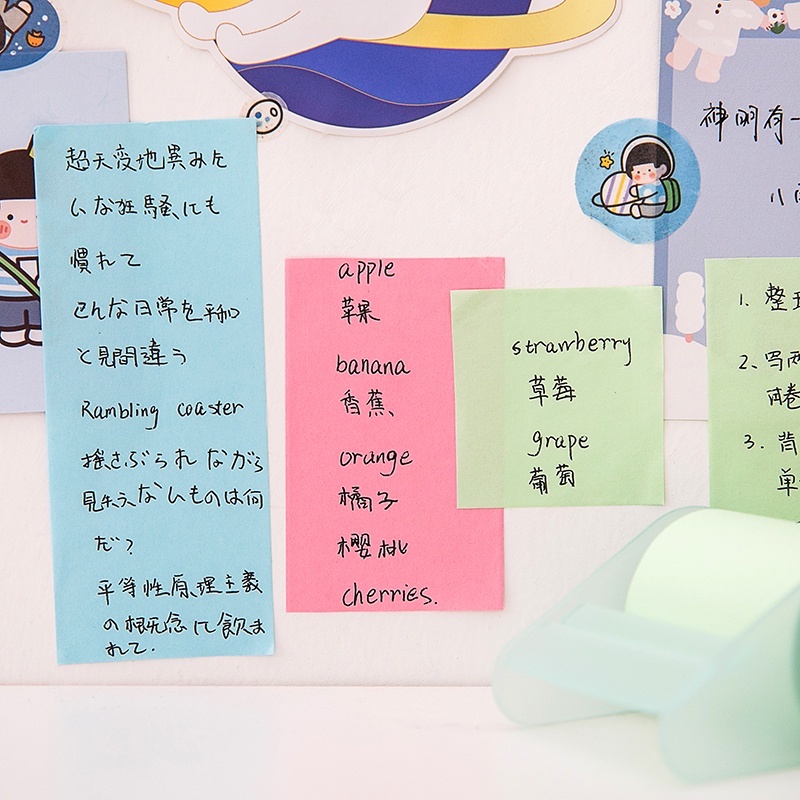 超天変地異みた
いな狂騒にも
慣れて
こんな日常を平和
と見間違う
Rambling coaster
揺さぶられながら
見失えないものは何
だ?
平等性原理主義
の概念に飲ま
れて.
apple
苹果
banana
香蕉、
orange
橘子
樱桃
cherries.
strawberry
草莓
grape
葡萄
神明有一
八
1. 整
2、写两
两卷
3. 背
单